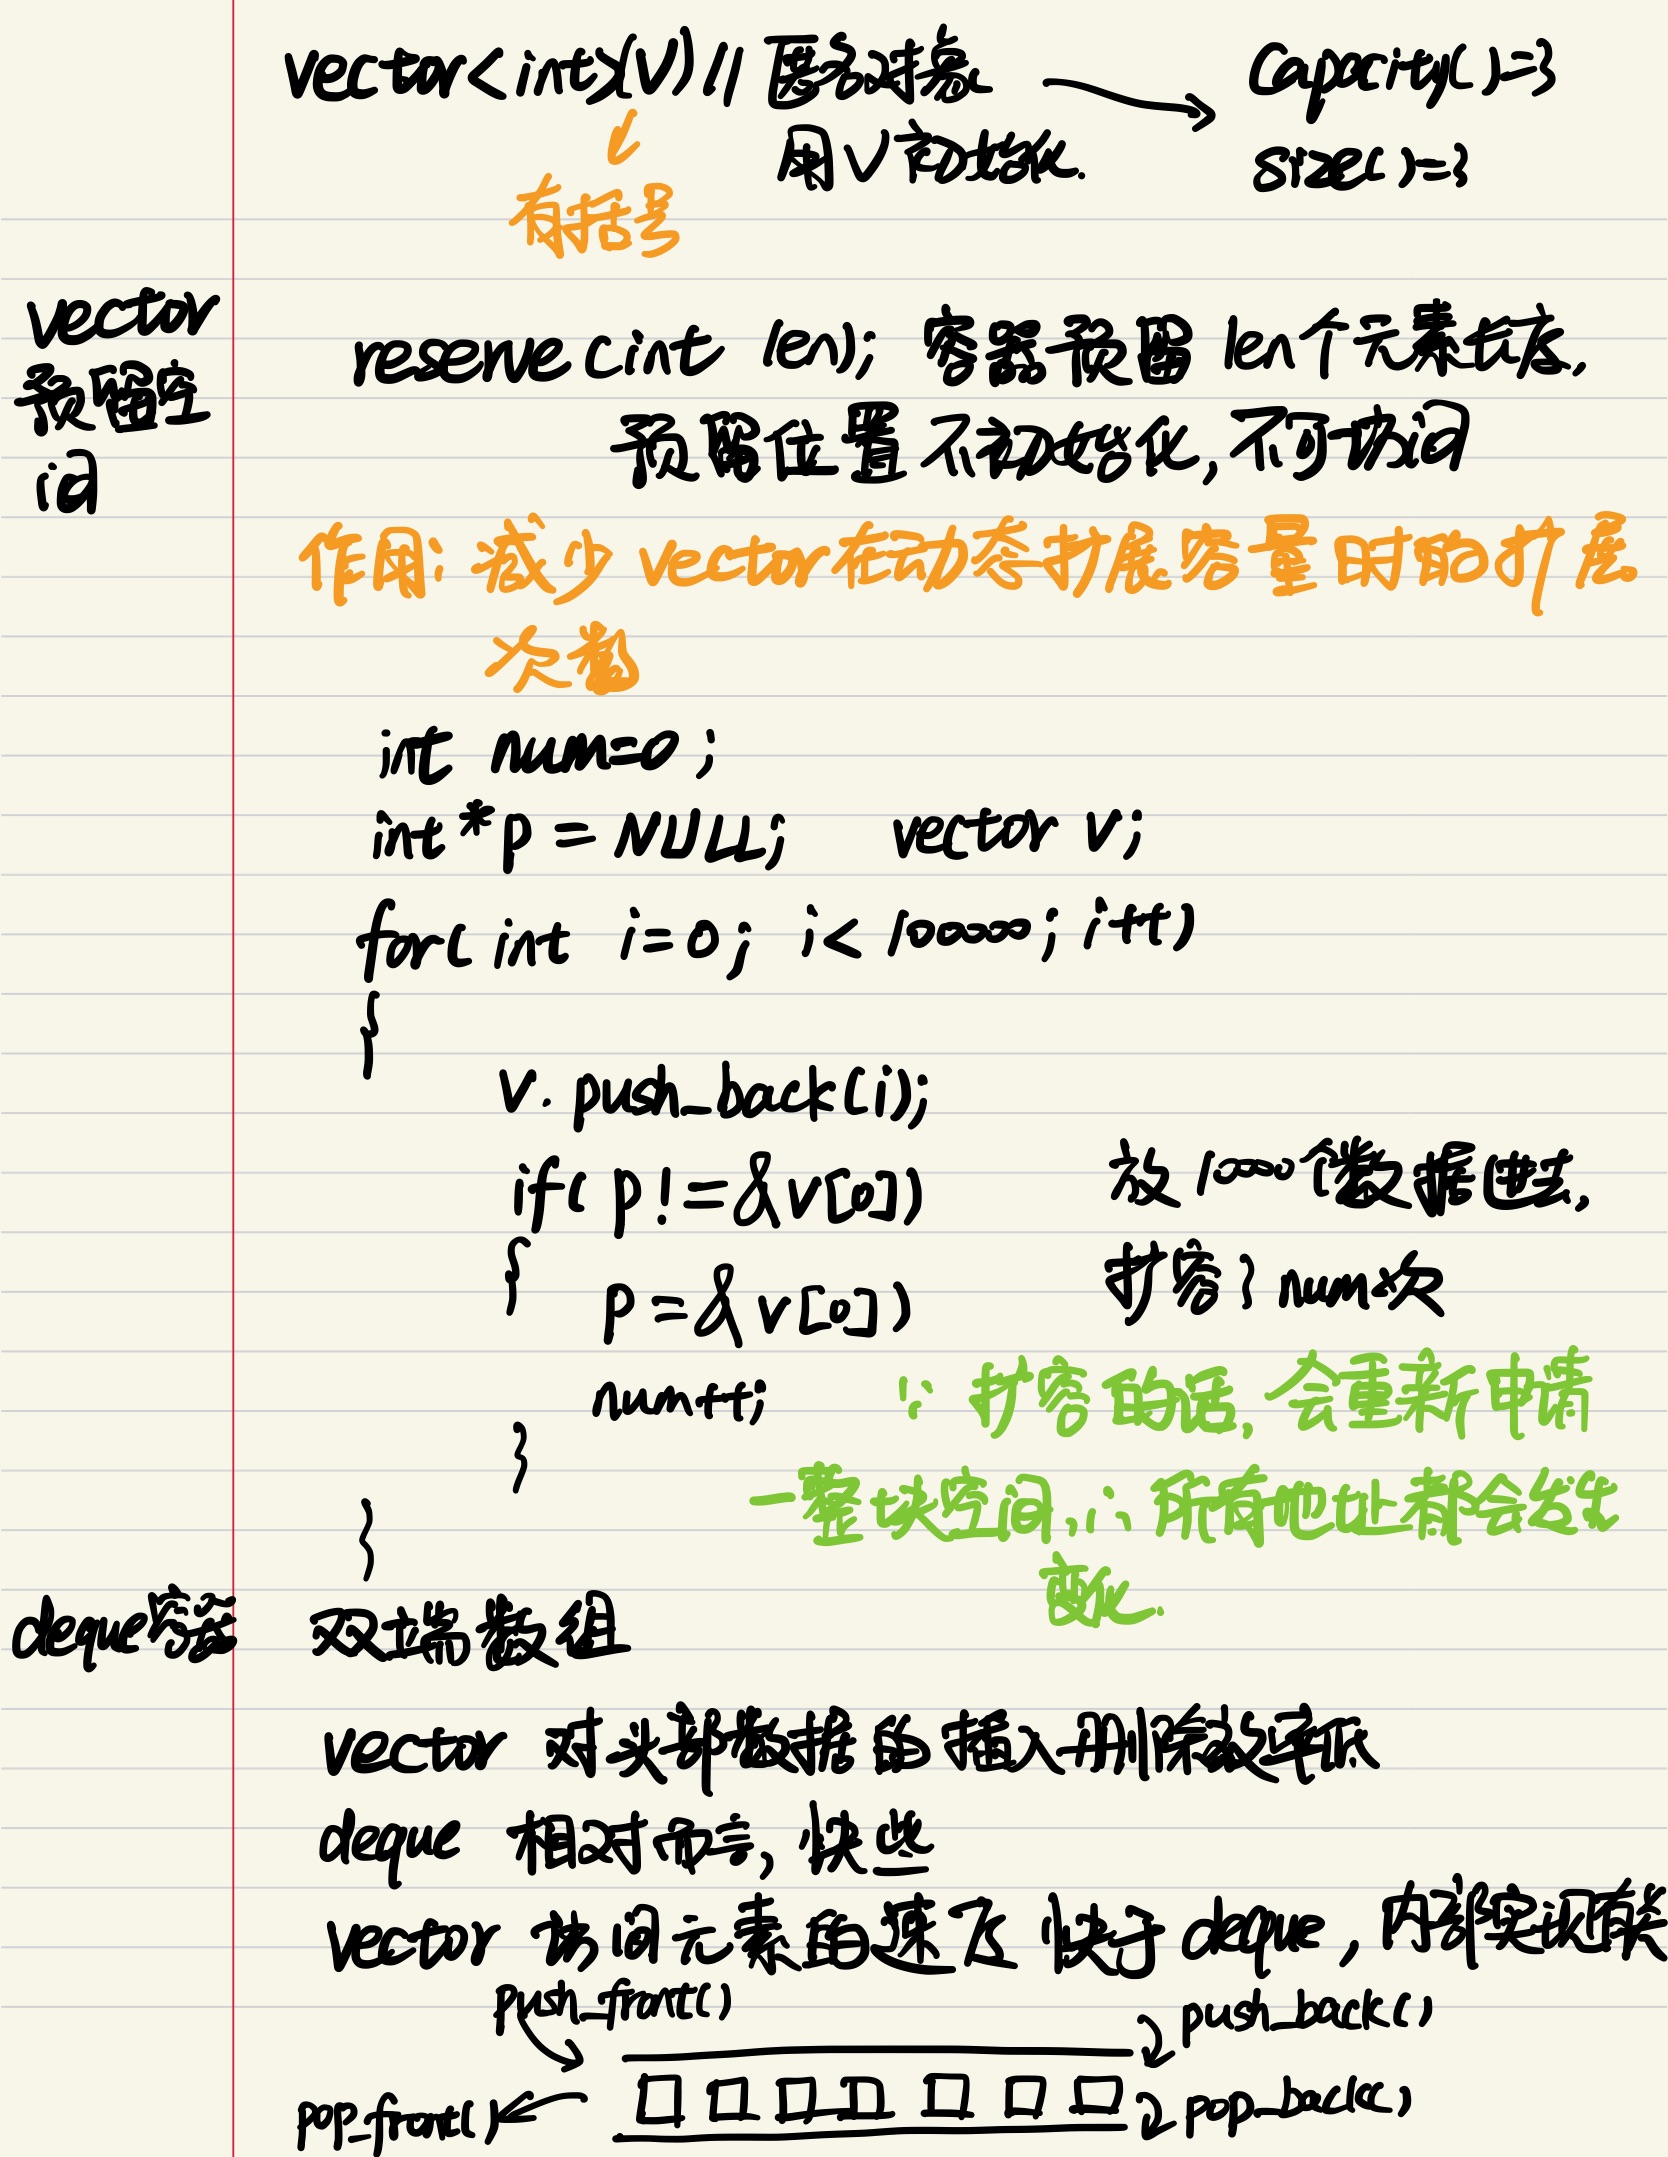 vector<int>(v) // 匿名对象 → capacity()=3
用v初始化. size()=3
有括号
vector
预留空
间
reserve(int len); 容器预留len个元素长度,
预留位置不初始化,不可访问
作用: 减少vector在动态扩展容量时的扩展
次数
int num=0;
int *p = NULL; vector v;
for( int i=0; i< 100000; i++)
{
v. push_back(i);
if( p!=&v[0])
放10000个数据进去,
{ p=&v[0])
扩容了num次
num++;
∵ 扩容的话,会重新申请
}
一整块空间,∴所有地址都会发生
变化.
}
deque容器 双端数组
vector 对头部数据的插入删除效率低
deque 相对而言,快些
vector 访问元素的速度快于deque,内部实现有关
push_front() push_back()
pop_front() pop_back()